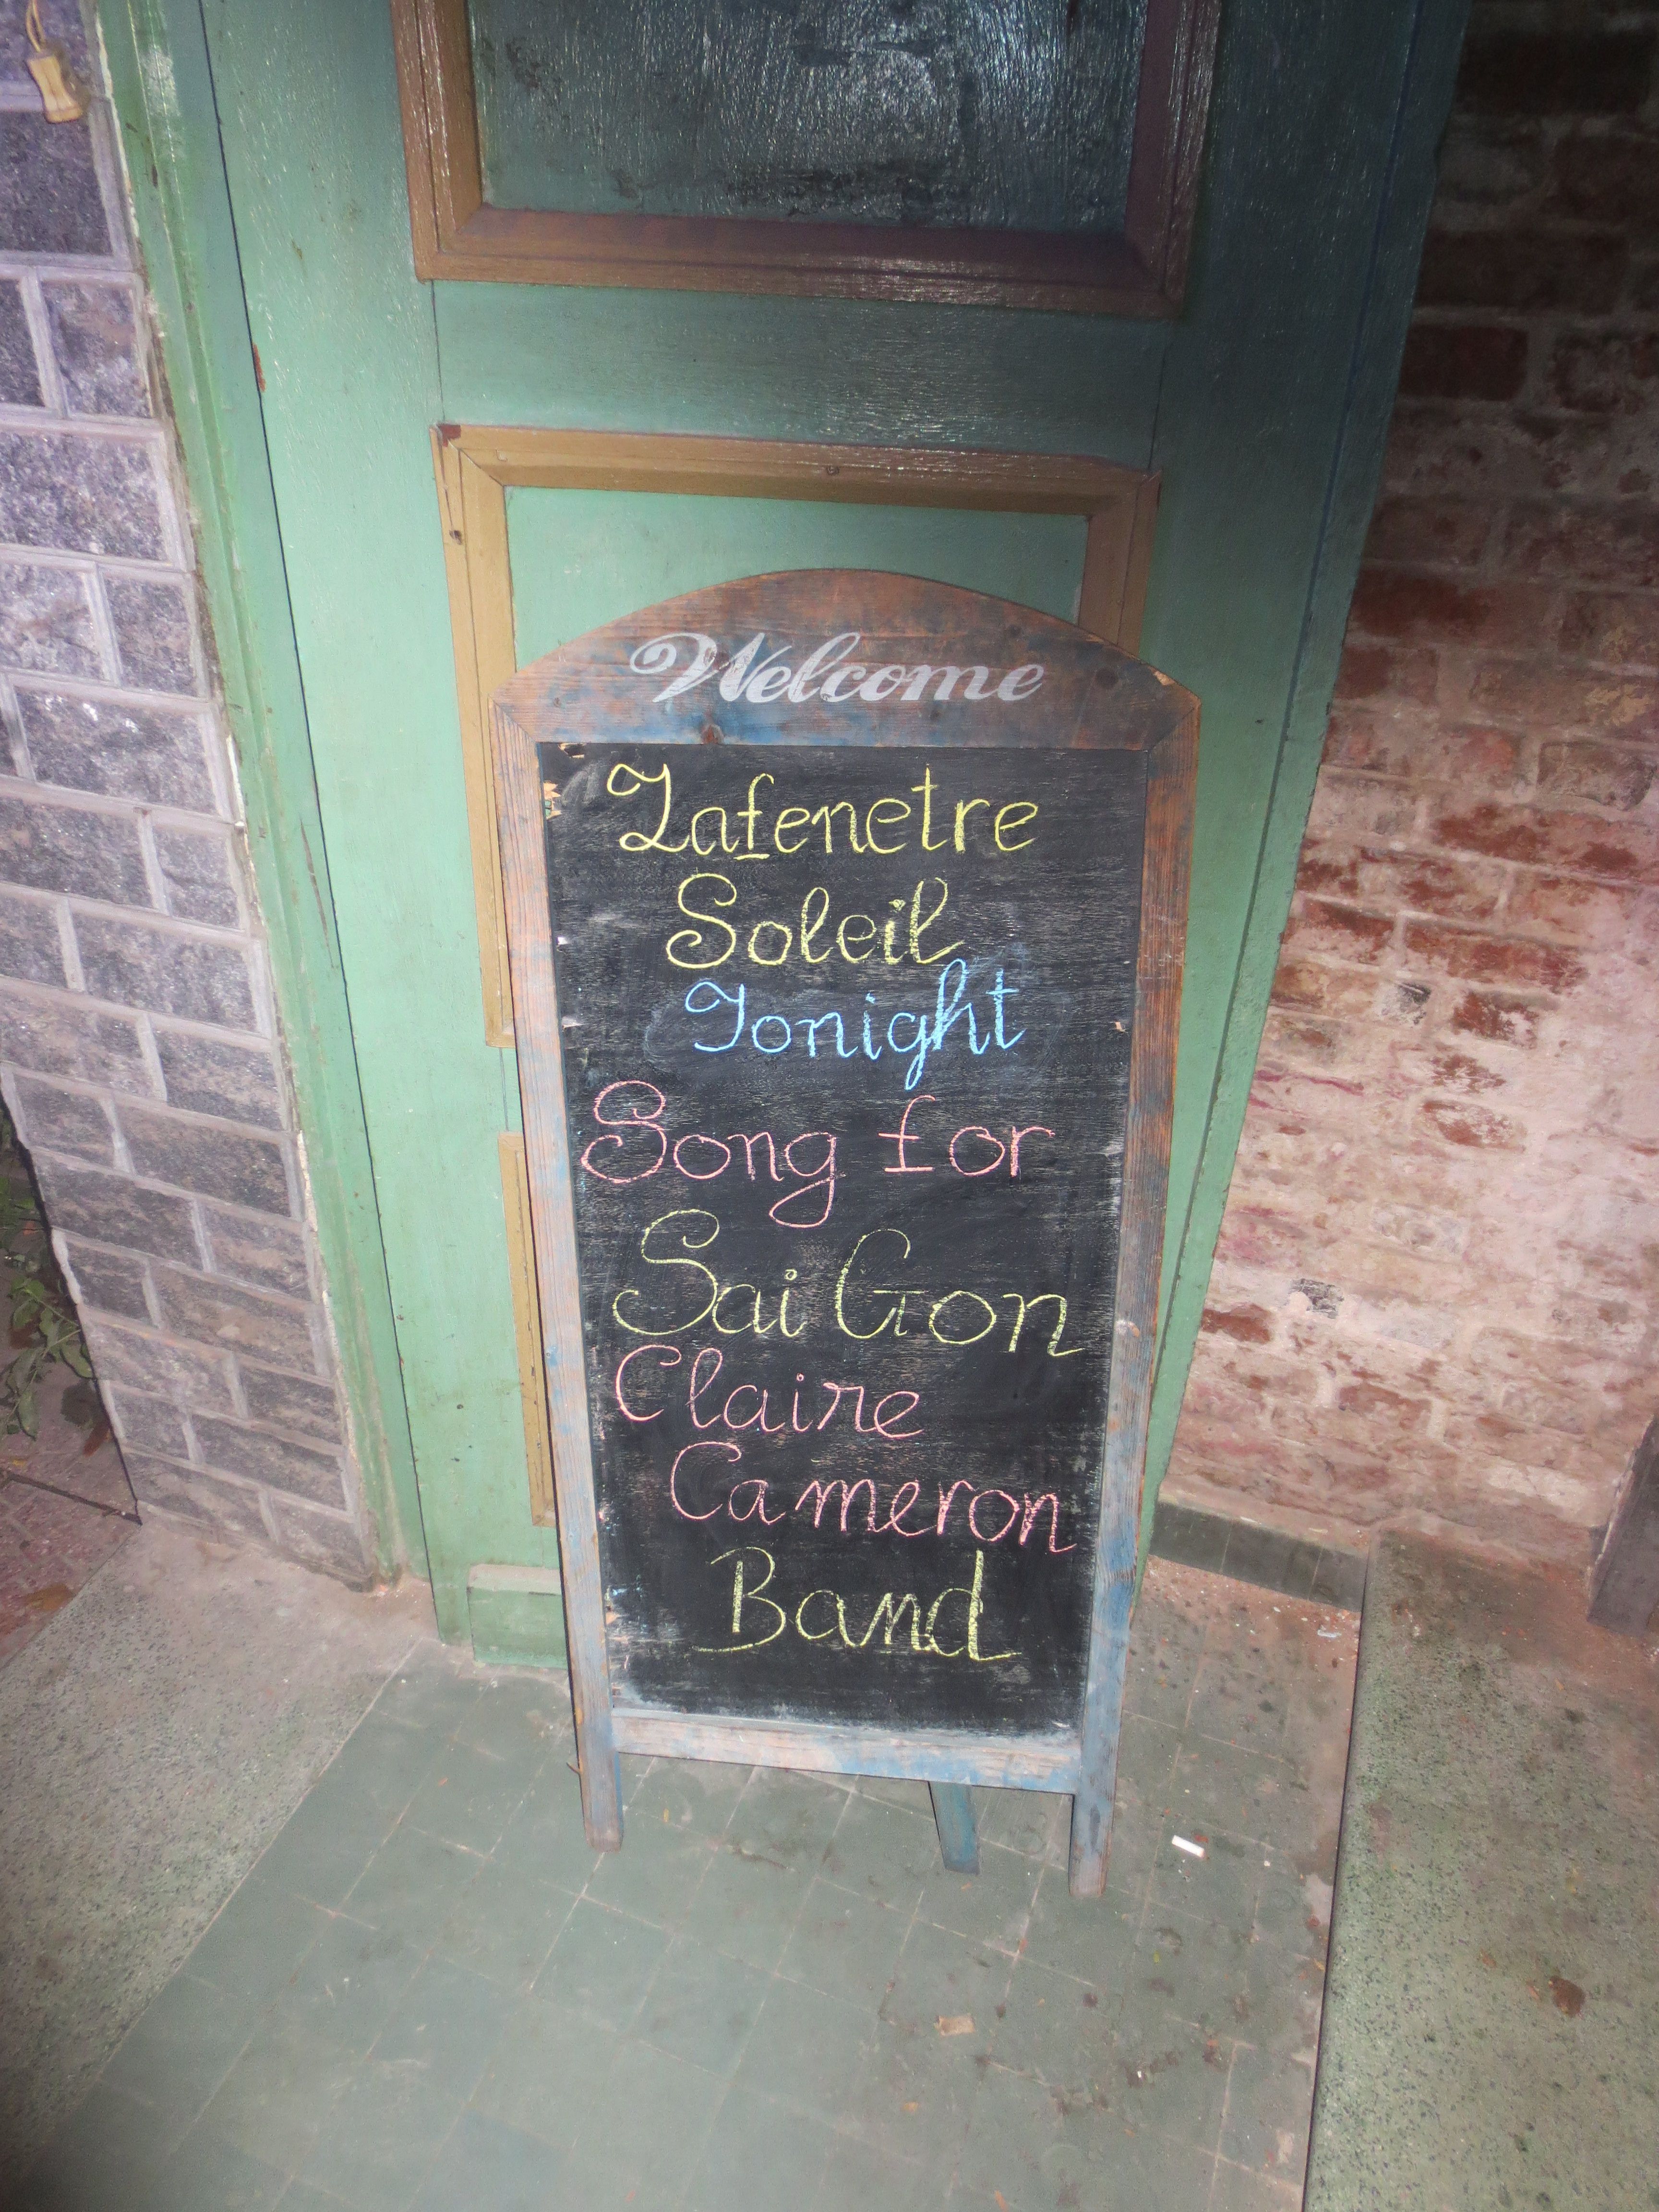 Welcome
Lafenetre
Soleil
Tonight
Song for
Sai Gon
Claire
Cameron
Band